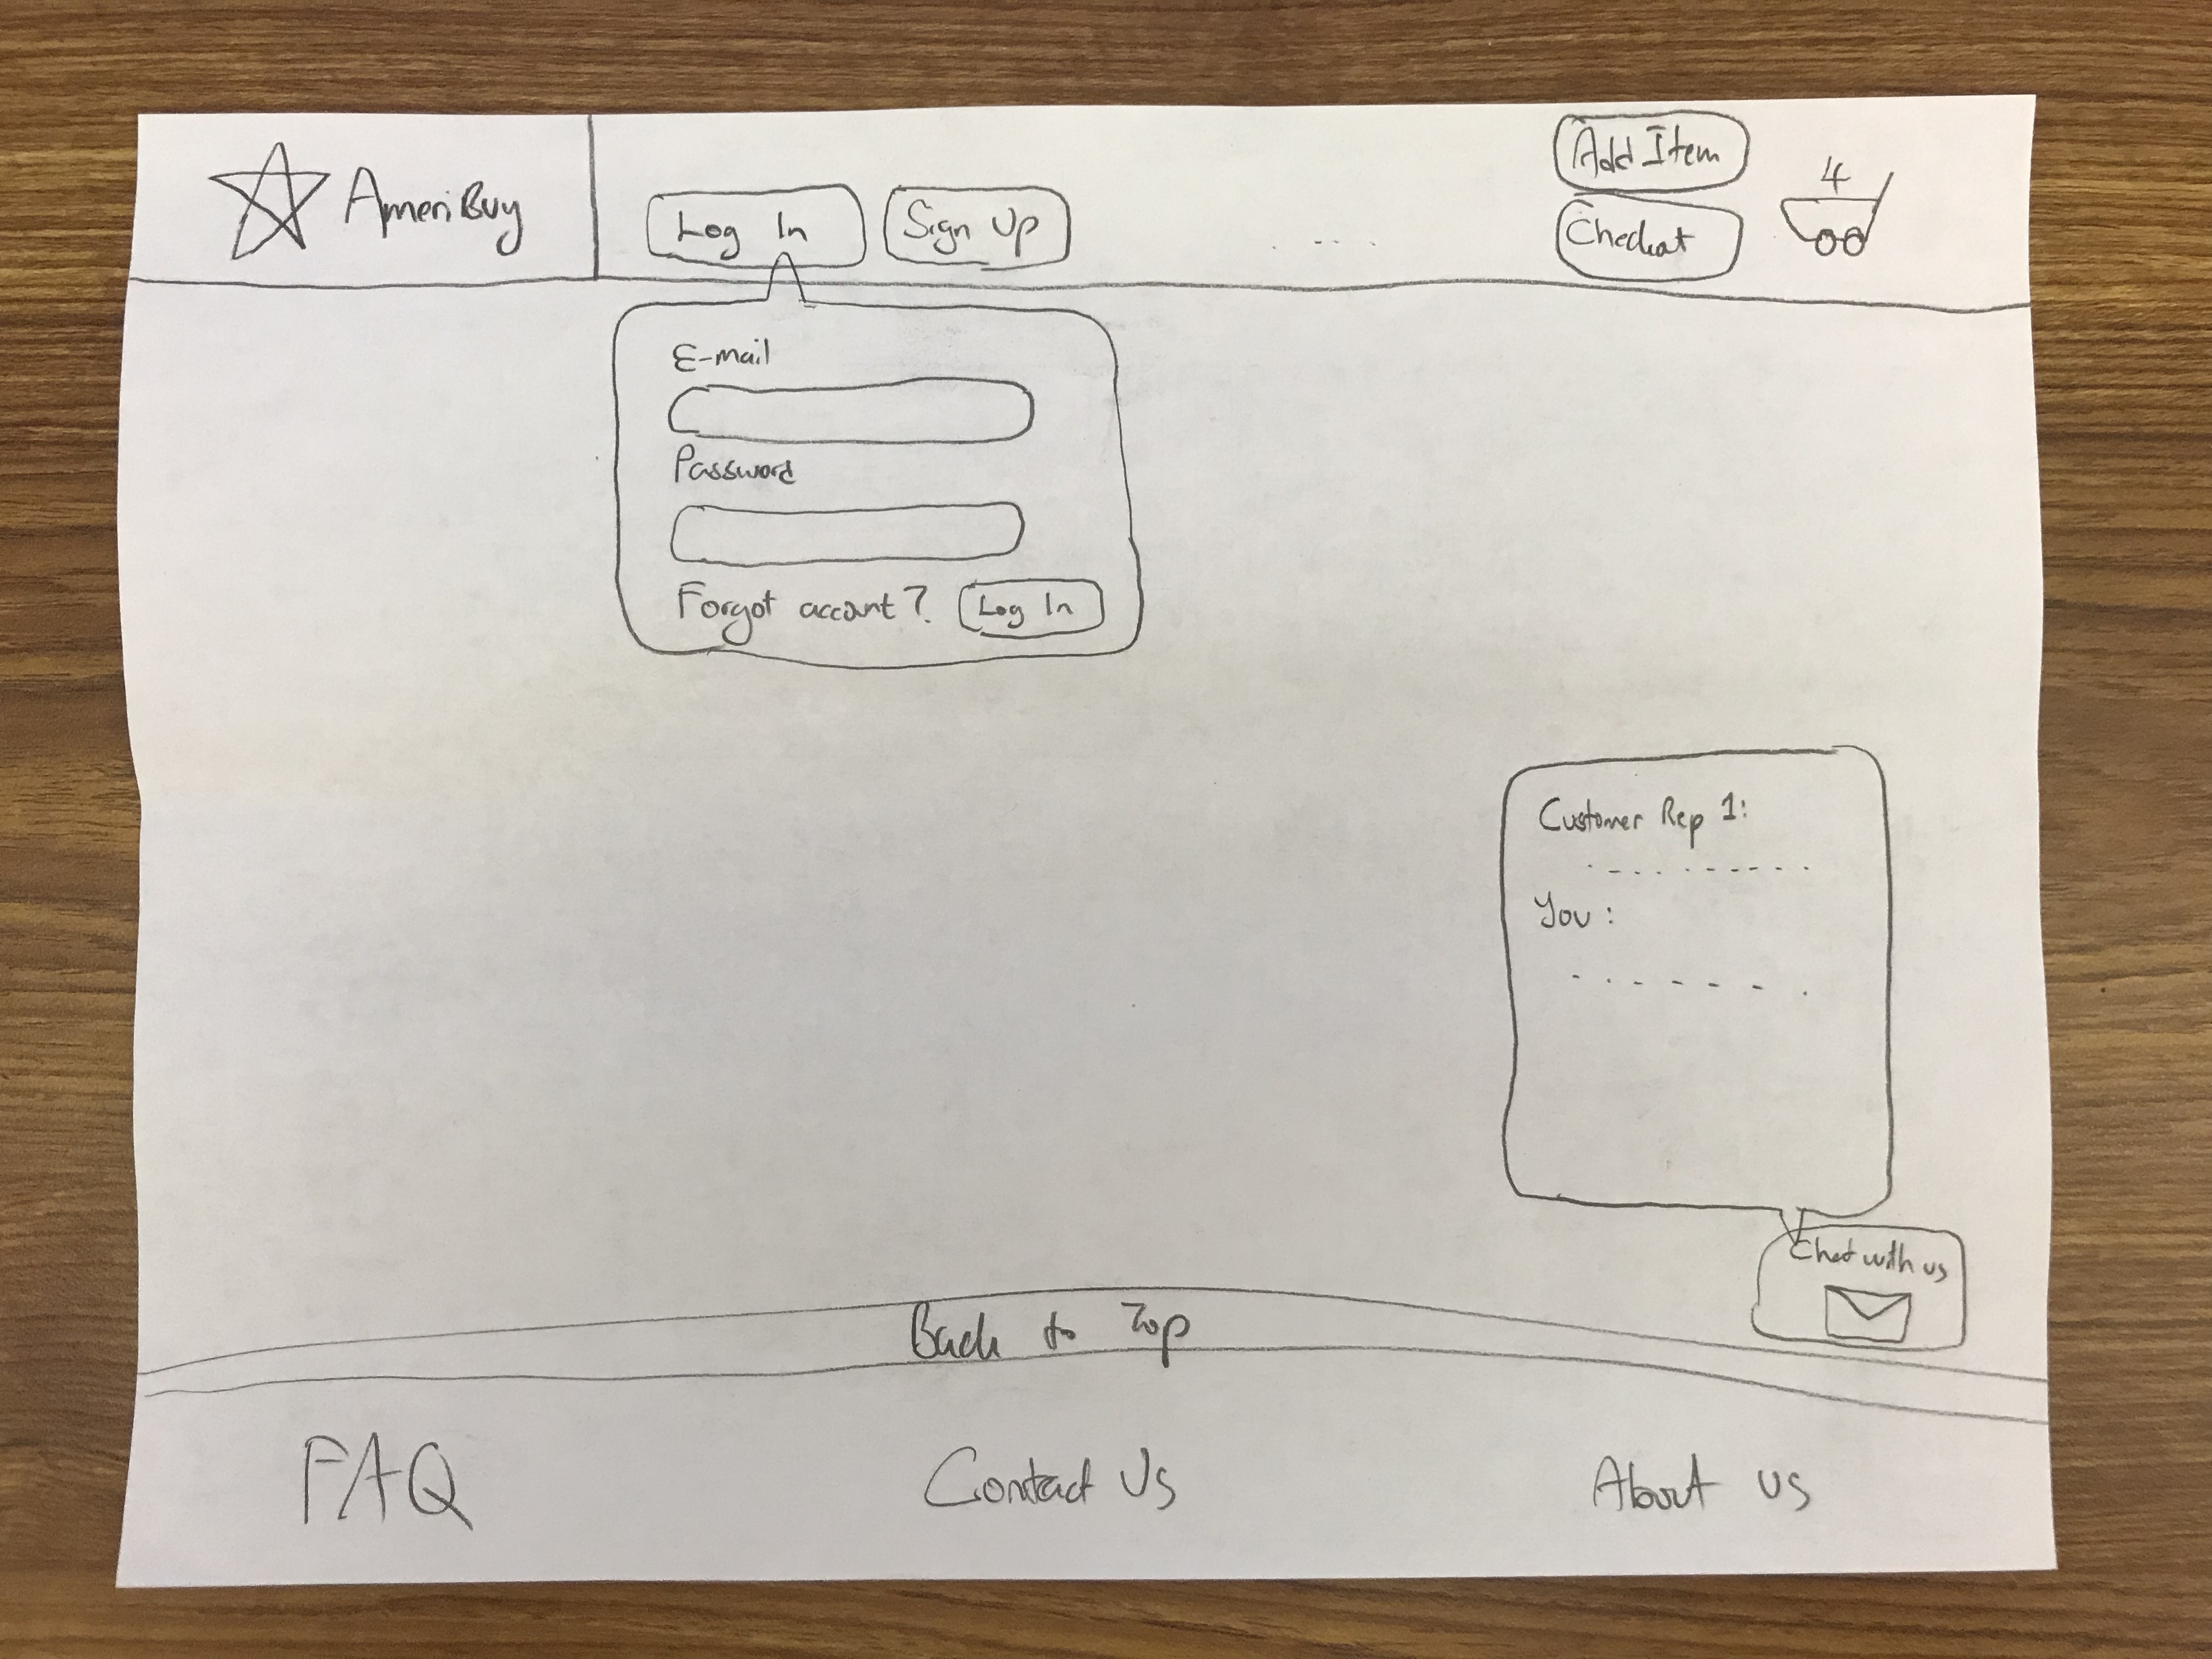 AmeriBuy
Log In
Sign Up
Add Item
Checkout
4
E-mail
Password
Forgot account?
Log In
Customer Rep 1:
You:
Chat with us
Back to Top
FAQ
Contact Us
About us